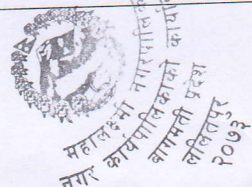 महालक्ष्मी नगरपालिका
नगर कार्यपालिकाको कार्या
बागमती प्रदेश
ललितपुर
२०७३